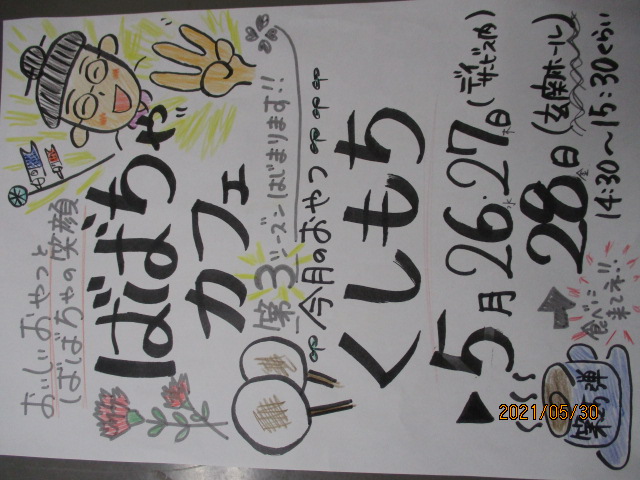 おいしいおやつと
ばばちゃの笑顔
ばばちゃ
カフェ
第3シーズンはじまります!!
今月のおやつ
くしもち
▶5月26水.27木日(デイサービス内)
28金日(玄関ホール)
14:30~15:30くらい
食べに
来てネ!!
2021/05/30